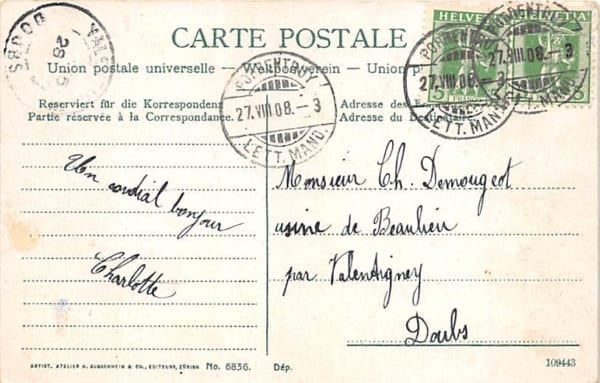 CARTE POSTALE
Union postale universelle — Weltpostverein — Union p
Reserviert für die Korrespondenz
Partie réservée à la Correspondance.
Adresse des
Adresse du
HELVETIA
HELVETIA
PORRENTRUY
27.VIII.08. — 3
LETT. MAND.
PORRENTRUY
27.VIII.08. — 3
LETT. MAND.
PORRENTRUY
27.VIII.08. — 3
LETT. MAND.
DOUBS
28
Un cordial bonjour
Charlotte
Monsieur Ch. Demougeot
usine de Beaulieu
par Valentigney
Doubs
ARTIST. ATELIER H. GUGGENHEIM & CO., EDITEURS, ZÜRICH No. 6836. Dép. 109443